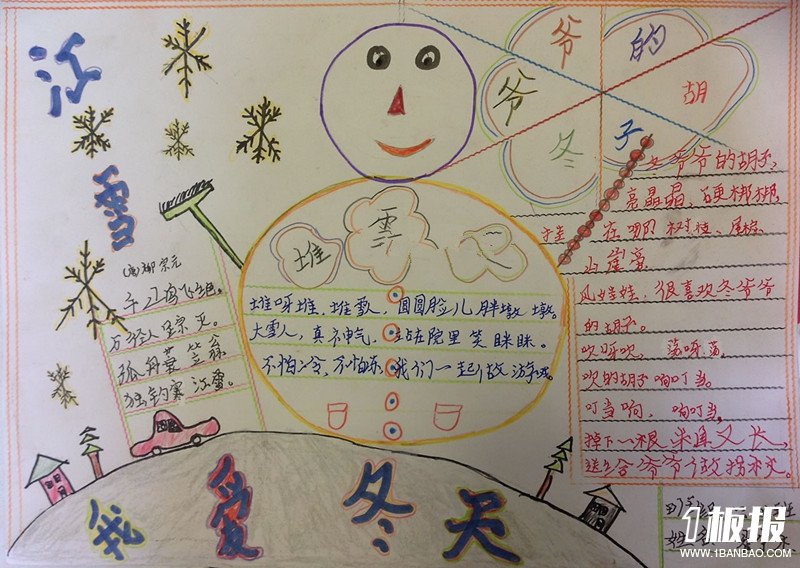 江
雪
(唐)柳宗元
千山鸟飞绝。
万径人踪灭。
孤舟蓑笠翁
独钓寒江雪。
堆雪人
堆呀堆,堆雪人,圆圆脸儿胖墩墩。
大雪人,真神气,站在院里笑眯眯。
不怕冷,不怕冻,我们一起做游戏。
冬爷爷的胡子
冬爷爷的胡子,
亮晶晶,硬梆梆
挂在哪 树枝、屋檐
山崖旁
风娃娃,很喜欢冬爷爷
的胡子。
吹呀吹,荡呀荡
吹的胡子响叮当。
叮当响,响叮当,
掉下一根 来直又长,
送给爷爷做拐杖。
我爱冬天
班
姓名
1板报
WWW.1BANBAO.COM